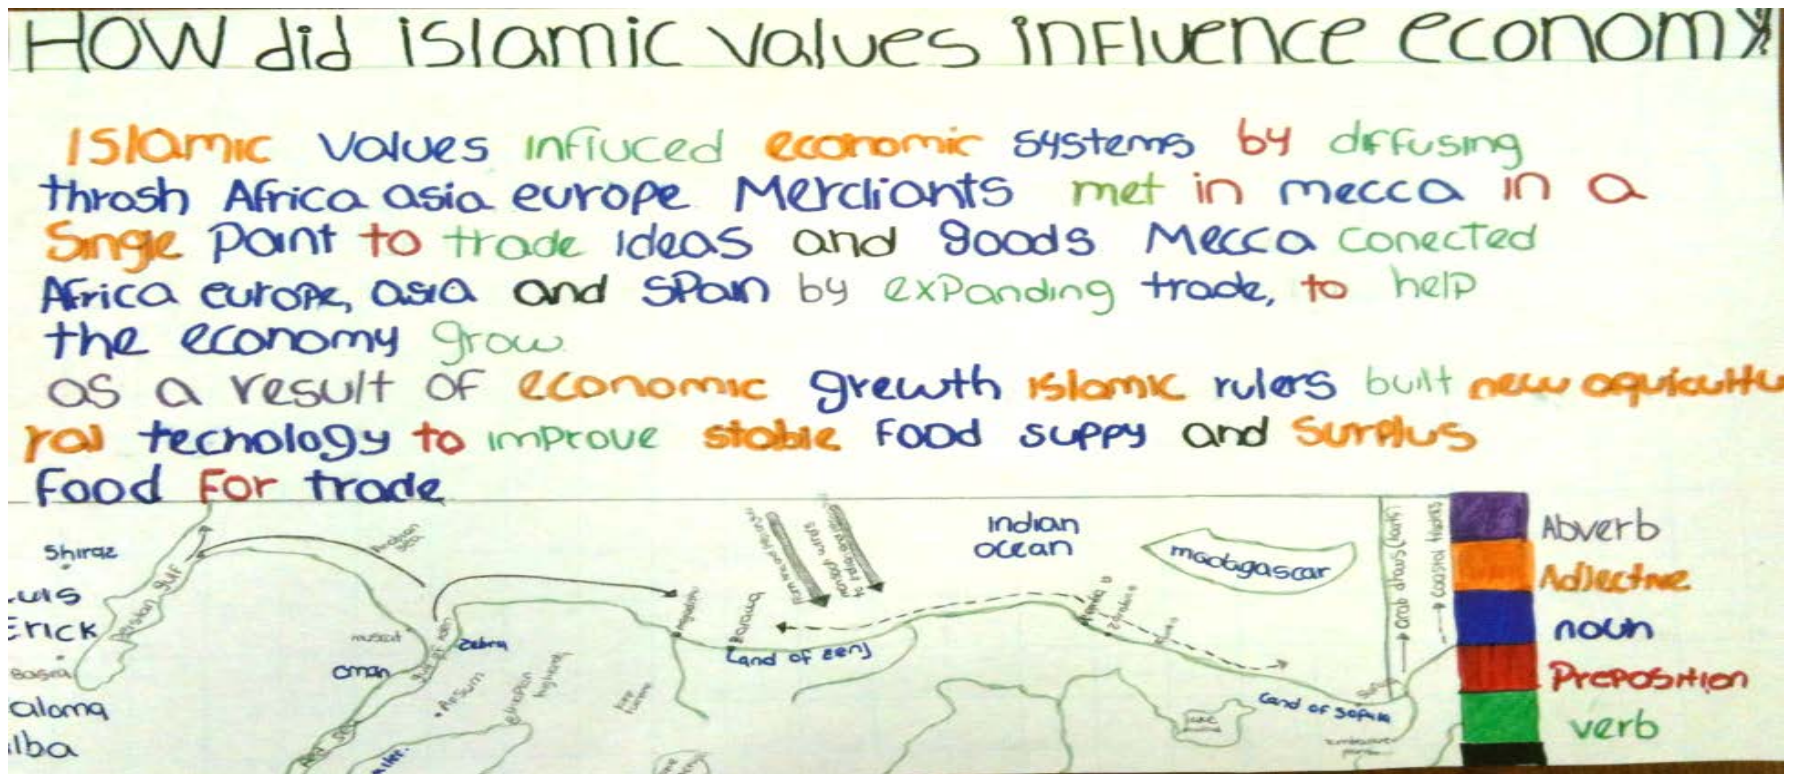 How did islamic values influence economy
Islamic values infiuced economic systems by diffusing
throsh Africa asia europe Merchants met in mecca in a
Single Point to trade ideas and goods Mecca conected
Africa europe, asia and SPain by exPanding trade, to help
the economy grow
as a result of economic grewth islamic rulers built new aquicultu
ral technology to improve stable food suppy and Surplus
food for trade
Shiraz
Luis
Erick
Basra
aloma
lba
Persian gulf
Arabian Sea
muscat
oman
Zebra
Aksum
Ethiopian highlands
Red Sea
Land of Zenj
Indian
ocean
madagascar
Land of Sofala
Arab dhows
coastal
Abverb
Adjective
noun
Preposition
verb